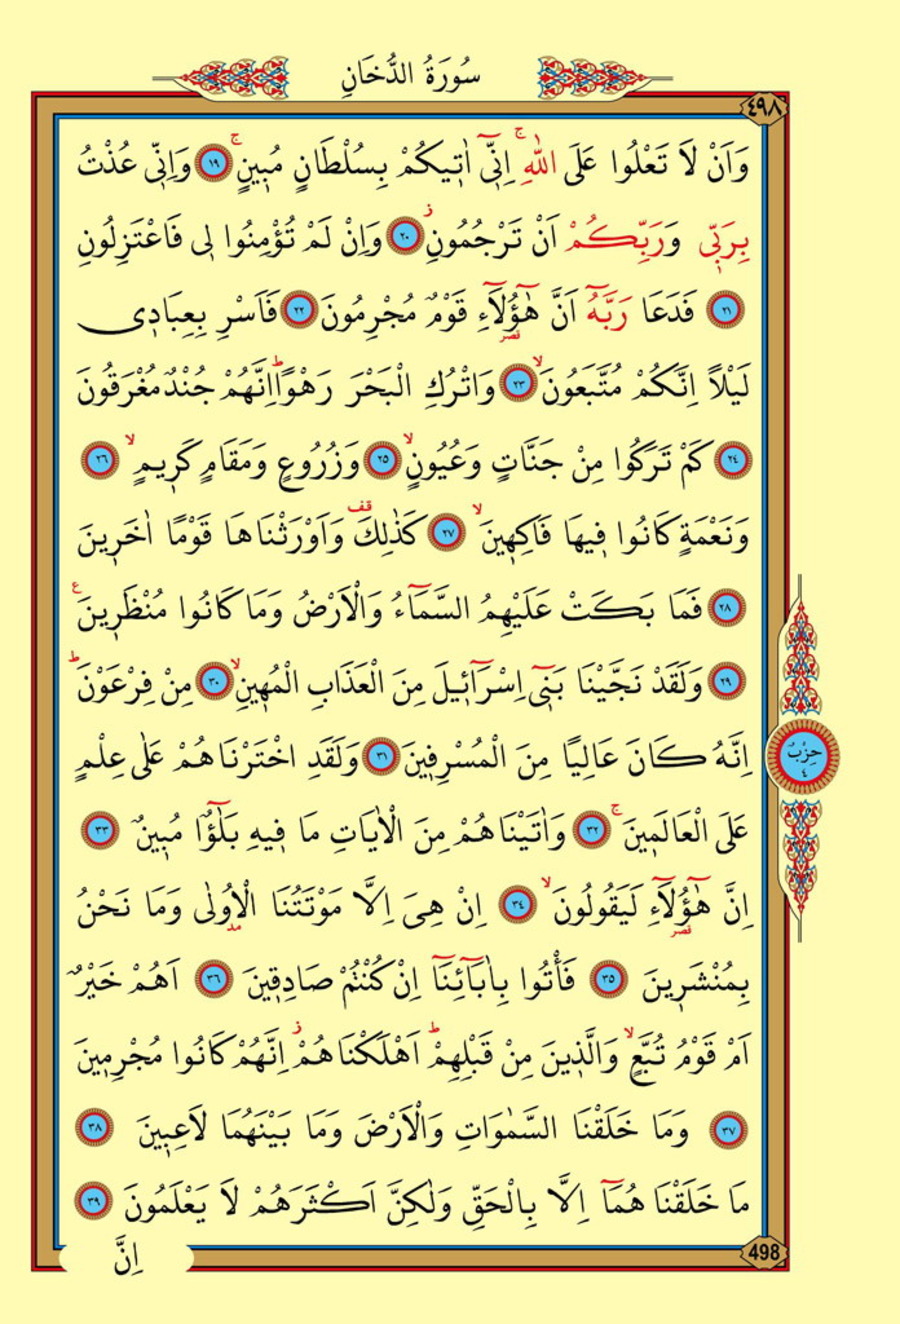 سُورَةُ الدُّخَانِ
٤٩٨
وَاَنْ لَا تَعْلُوا عَلَى اللّٰهِۚ اِنّ۪ٓي اٰت۪يكُمْ بِسُلْطَانٍ مُب۪ينٍۚ ﴿١٩﴾ وَاِنّ۪ي عُذْتُ
بِرَبّ۪ي وَرَبِّكُمْ اَنْ تَرْجُمُونِۘ ﴿٢٠﴾ وَاِنْ لَمْ تُؤْمِنُوا ل۪ي فَاعْتَزِلُونِ
﴿٢١﴾ فَدَعَا رَبَّهُٓ اَنَّ هٰٓؤُ۬لَٓاءِ قَوْمٌ مُجْرِمُونَ ﴿٢٢﴾ فَاَسْرِ بِعِبَاد۪ي
لَيْلًا اِنَّكُمْ مُتَّبَعُونَۙ ﴿٢٣﴾ وَاتْرُكِ الْبَحْرَ رَهْوًاۜ اِنَّهُمْ جُنْدٌ مُغْرَقُونَ
﴿٢٤﴾ كَمْ تَرَكُوا مِنْ جَنَّاتٍ وَعُيُونٍۙ ﴿٢٥﴾ وَزُرُوعٍ وَمَقَامٍ كَر۪يمٍۙ ﴿٢٦﴾
وَنَعْمَةٍ كَانُوا ف۪يهَا فَاكِه۪ينَۙ ﴿٢٧﴾ كَذٰلِكَ۠ وَاَوْرَثْنَاهَا قَوْمًا اٰخَر۪ينَ
﴿٢٨﴾ فَمَا بَكَتْ عَلَيْهِمُ السَّمَٓاءُ وَالْاَرْضُ وَمَا كَانُوا مُنْظَر۪ينَ۟
﴿٢٩﴾ وَلَقَدْ نَجَّيْنَا بَن۪ٓي اِسْرَٓاء۪يلَ مِنَ الْعَذَابِ الْمُه۪ينِۙ ﴿٣٠﴾ مِنْ فِرْعَوْنَۜ
اِنَّهُ كَانَ عَالِيًا مِنَ الْمُسْرِف۪ينَ ﴿٣١﴾ وَلَقَدِ اخْتَرْنَاهُمْ عَلٰى عِلْمٍ
عَلَى الْعَالَم۪ينَۚ ﴿٣٢﴾ وَاٰتَيْنَاهُمْ مِنَ الْاٰيَاتِ مَا ف۪يهِ بَلٰٓؤٌ۬ا مُب۪ينٌ ﴿٣٣﴾
اِنَّ هٰٓؤُ۬لَٓاءِ لَيَقُولُونَۙ ﴿٣٤﴾ اِنْ هِيَ اِلَّا مَوْتَتُنَا الْاُو۫لٰى وَمَا نَحْنُ
بِمُنْشَر۪ينَ ﴿٣٥﴾ فَأْتُوا بِاٰبَٓائِنَٓا اِنْ كُنْتُمْ صَادِق۪ينَ ﴿٣٦﴾ اَهُمْ خَيْرٌ
اَمْ قَوْمُ تُبَّعٍۙ وَالَّذ۪ينَ مِنْ قَبْلِهِمْۜ اَهْلَكْنَاهُمْۘ اِنَّهُمْ كَانُوا مُجْرِم۪ينَ
﴿٣٧﴾ وَمَا خَلَقْنَا السَّمٰوَاتِ وَالْاَرْضَ وَمَا بَيْنَهُمَا لَاعِب۪ينَ ﴿٣٨﴾
مَا خَلَقْنَاهُمَٓا اِلَّا بِالْحَقِّ وَلٰكِنَّ اَكْثَرَهُمْ لَا يَعْلَمُونَ ﴿٣٩﴾
حِزْبٌ
٤
498
اِنَّ